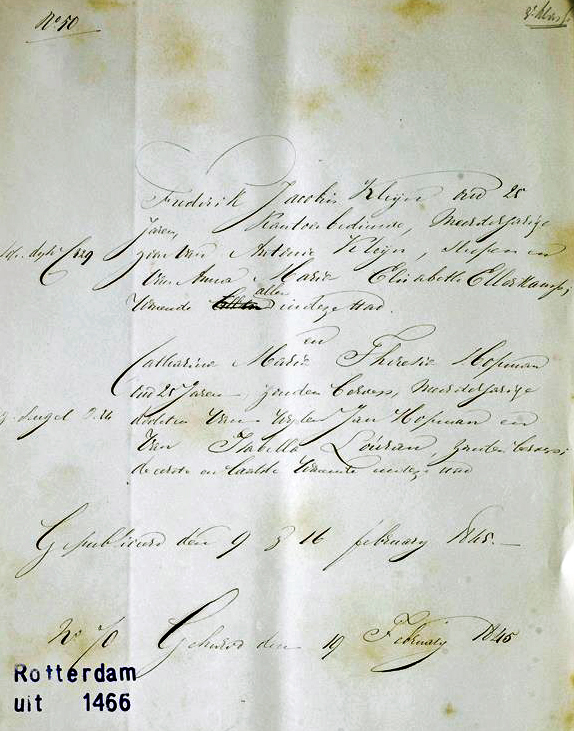 No. 50
3e klasse
Frederik Jacobus Kleyn oud 25
Jaren, Kantoorbediende, Meerderjarige
zoon van Antonie Kleyn, en
van Anna Maria Elisabeth Ellerkamp,
wonende allen in deze stad.
en
Catharina Maria Theresia Hopman
oud 25 Jaren, zonder beroep, Meerderjarige
Singel
dochter van wylen Jan Hopman en
van Isabella Lourian, zonder beroep
de eerste en laatste wonende in deze stad
Gepubliceerd den 9 & 16 february 1845.
No. 70 Gehuwd den 19 February 1845
Rotterdam
uit 1466